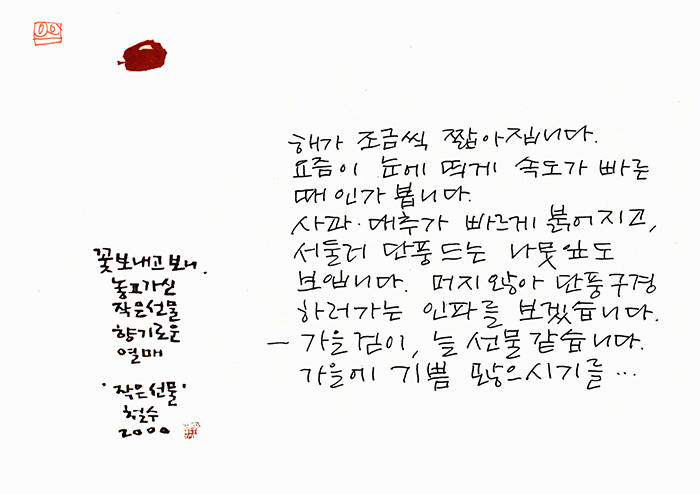 꽃 보내고 보니,
놓고 가신
작은 선물
향기로운
열매
'작은 선물'
철수
2000
해가 조금씩 짧아집니다.
요즘이 눈에 띄게 속도가 빠른
때인가 봅니다.
사과·대추가 빠르게 붉어지고,
서둘러 단풍드는 나뭇잎도
보입니다. 머지않아 단풍구경
하러가는 인파를 보겠습니다.
- 가을걷이, 늘 선물 같습니다.
가을에 기쁨 많으시기를 ...